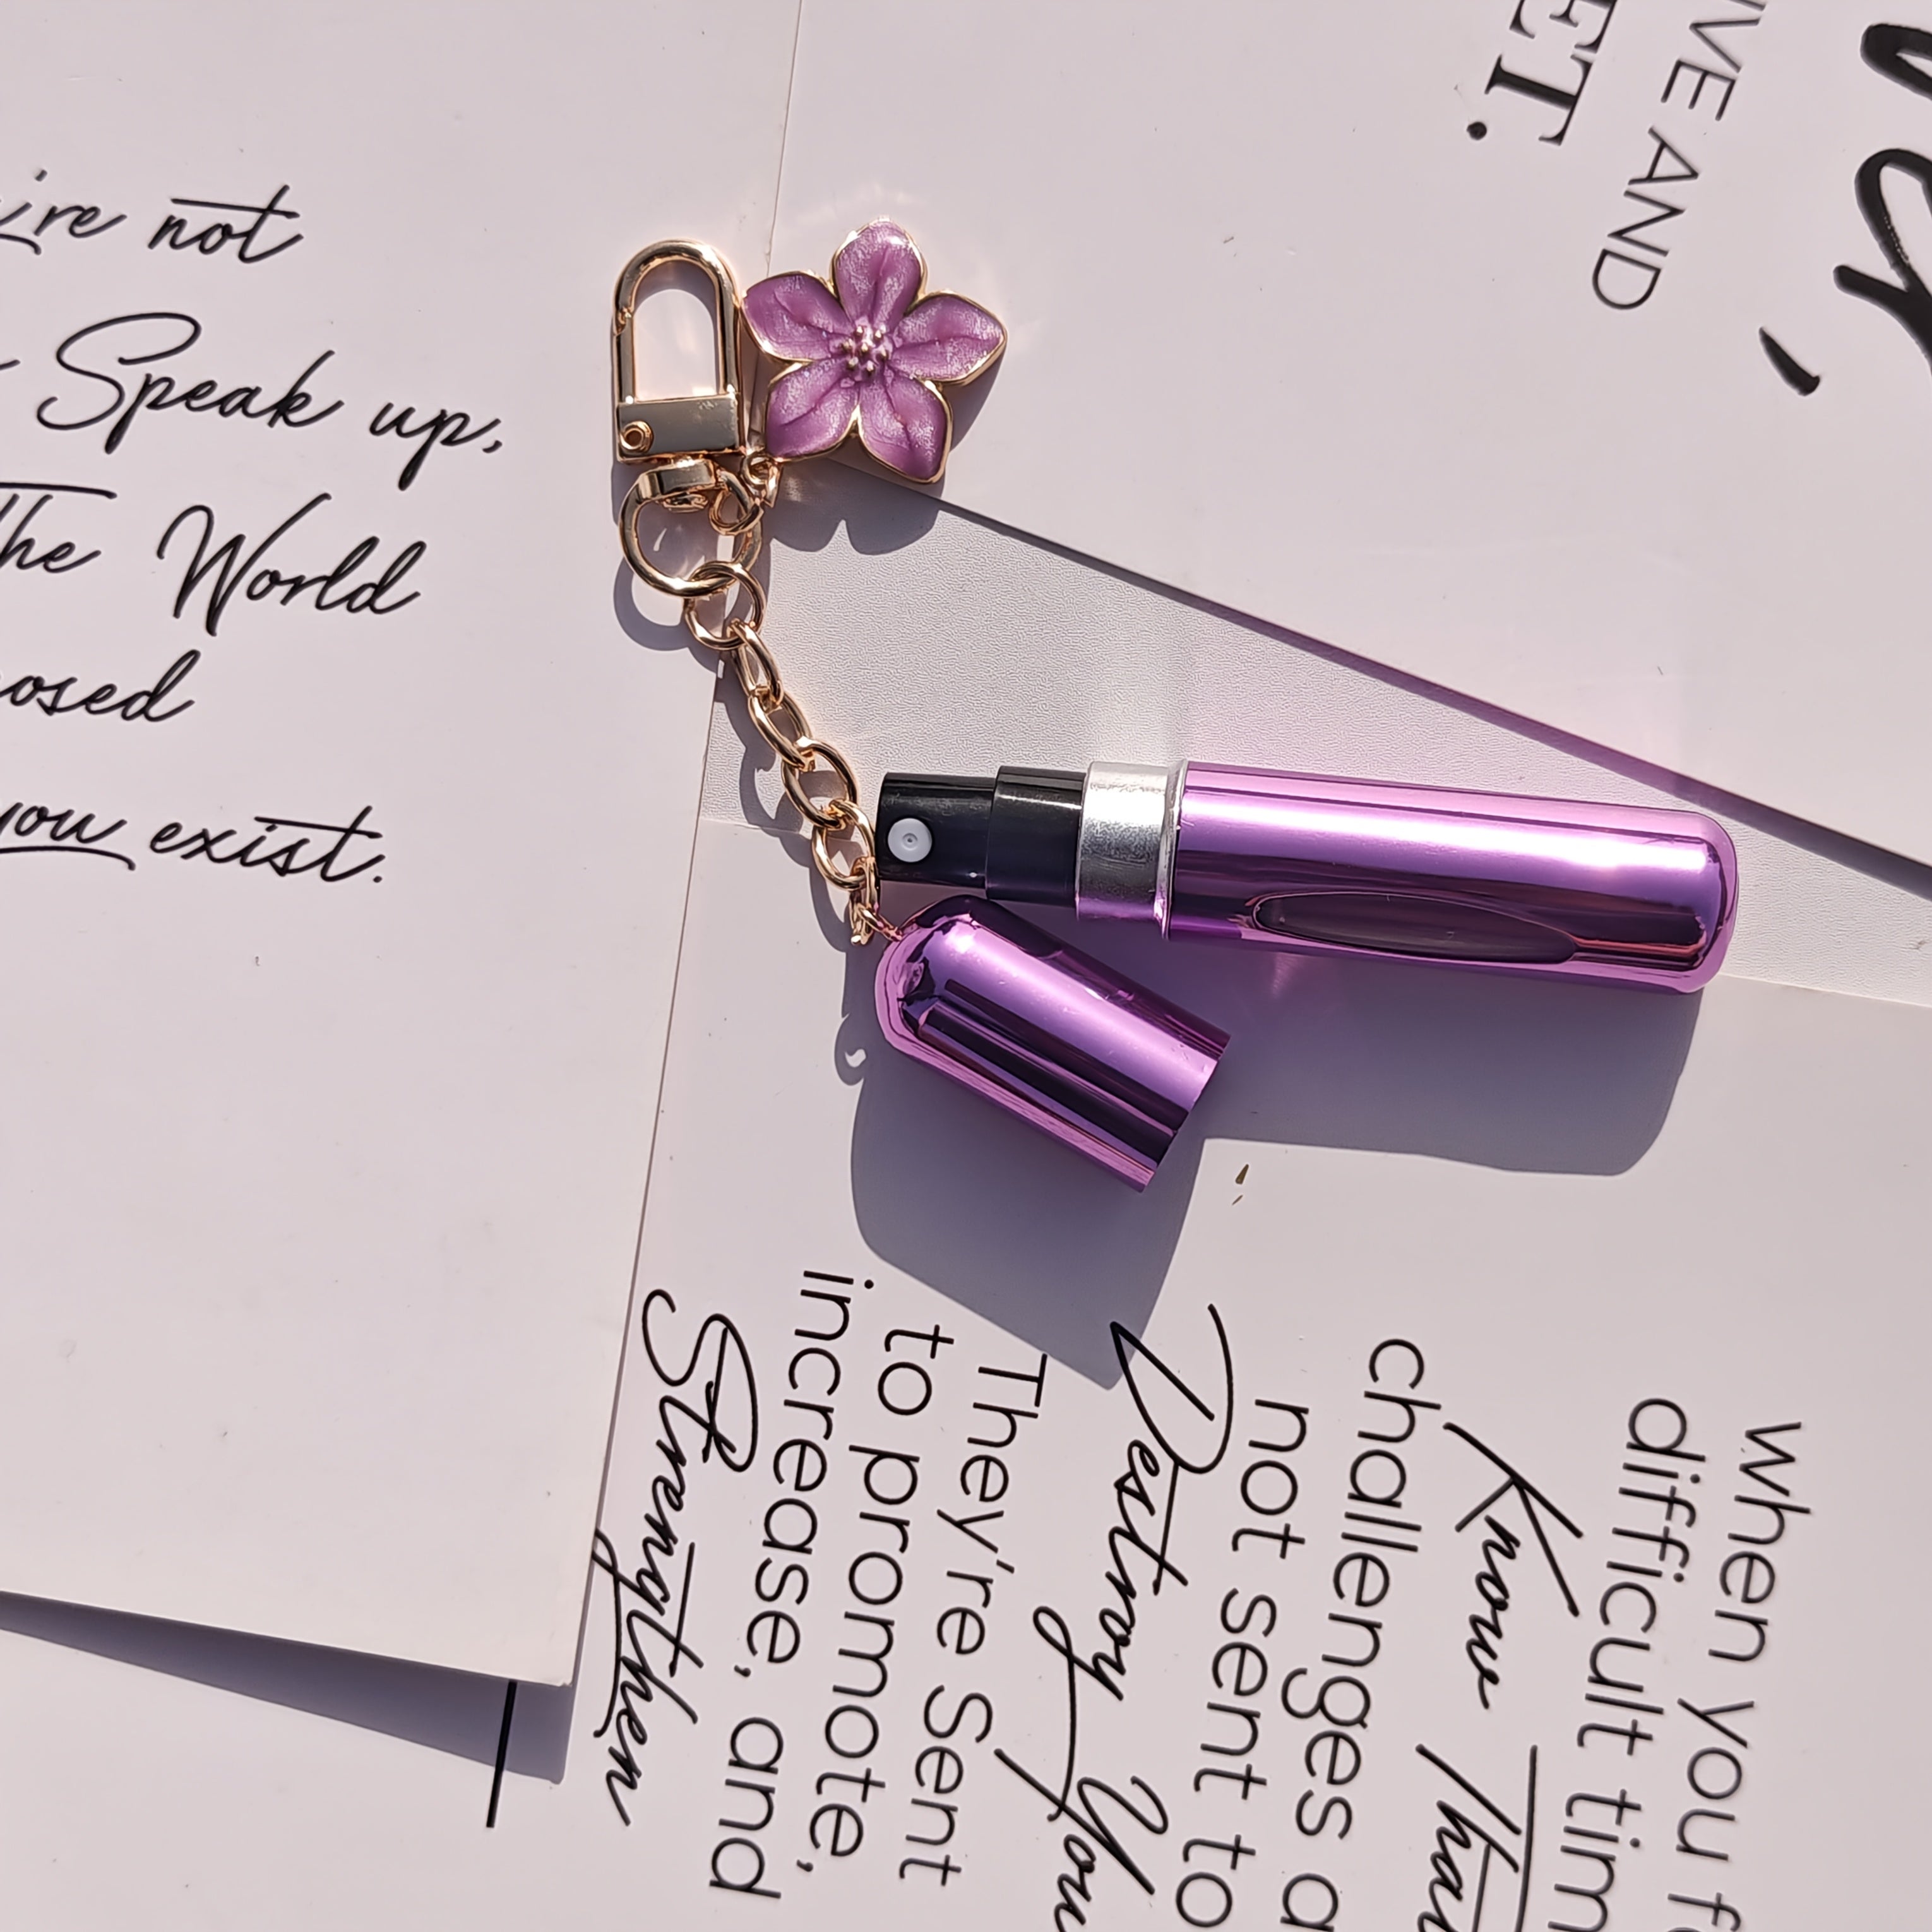 're not
Speak up,
The World
osed
you exist.
IVE AND
ET.
when you f
difficult tim
Know That
challenges a
not sent to
Destroy You
They're Sent
to promote,
increase, and
Strengthen